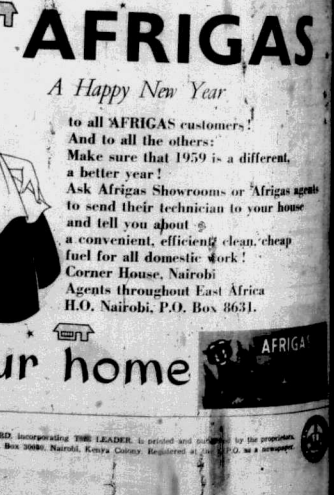 AFRIGAS
A Happy New Year
to all AFRIGAS customers!
And to all the others:
Make sure that 1959 is a different,
a better year!
Ask Afrigas Showrooms or Afrigas agents
to send their technician to your house
and tell you about
a convenient, efficient, clean, cheap
fuel for all domestic work!
Corner House, Nairobi
Agents throughout East Africa
H.O. Nairobi, P.O. Box 8631.
ur home
AFRIGAS
RD, incorporating THE LEADER, is printed and published by the proprietors,
Box 30080, Nairobi, Kenya Colony. Registered at the G.P.O. as a newspaper.